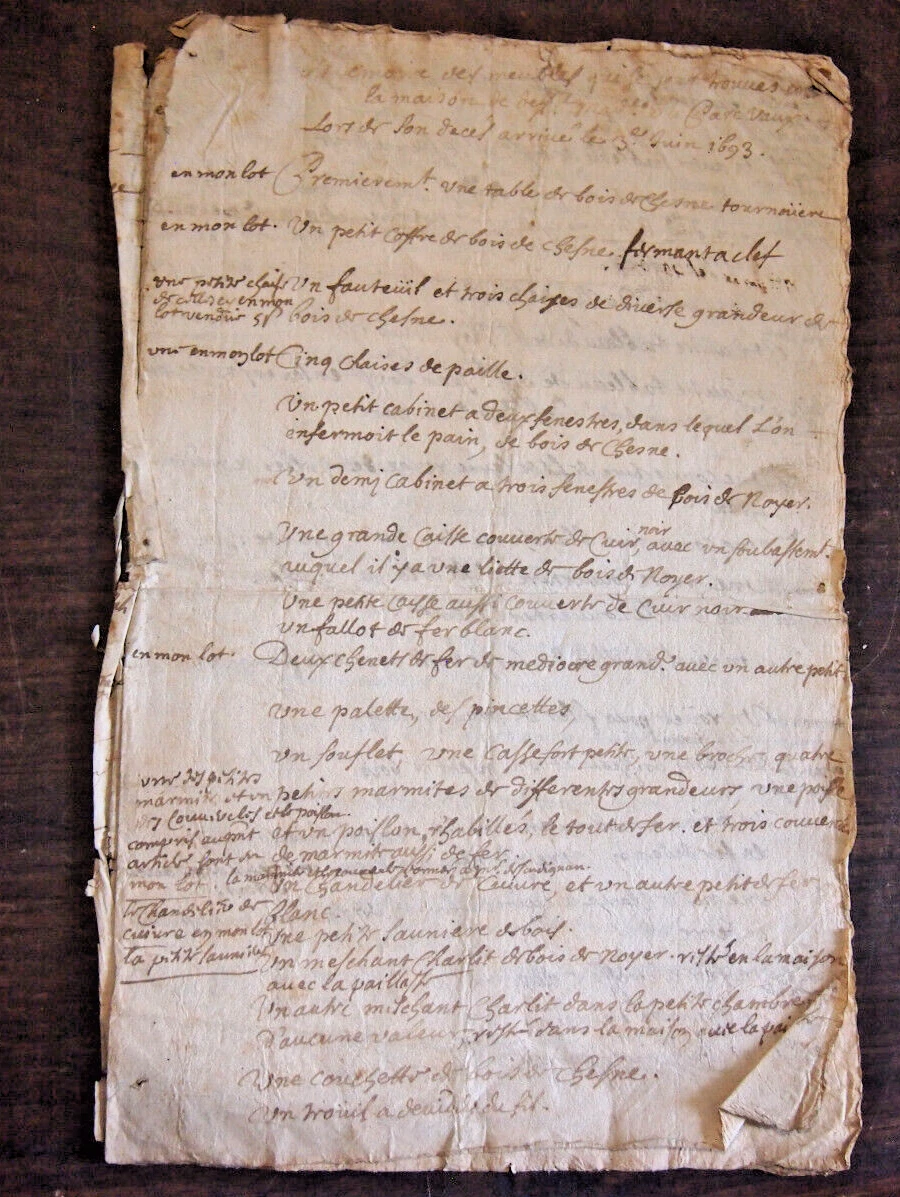 Memoire des meubles qui se sont trouves en
la maison de
Lors de son deces arrivé le 3e. Juin 1693.
en mon lot Premieremt. Une table de bois de Chesne tournoüere
en mon lot. Un petit Coffre de bois de chesne. fermant a clef
une petite chaise Un fauteüil et trois chaises de diverse grandeur de
en mon
lot vendüe bois de Chesne.
une en mon lot Cinq chaises de paille.
Un petit cabinet a deux fenestres, dans lequel L'on
enfermoit le pain, de bois de Chesne.
Un demj Cabinet a trois fenestres de bois de Noyer.
noir
Une grande Caisse couverte de Cuir, avec un soubassemt.
auquel il y a une liette de bois de Noyer.
Une petite Caisse aussi couverte de Cuir noir
un fallot de fer blanc.
en mon lot. Deux chenets de fer de mediocre grand.r avec un autre petit
Une palette, des pincettes,
un souflet, une Cassefort petite, une broche, quatre
une des petites
marmites et un petites marmites de differentes grandeurs une poisle
des Couvercles et le poislon
compris au pnt et un poislon rhabillés, le tout de fer. et trois couvercles
article sont en de marmite aussi de fer.
mon lot. la marmite et
Un Chandelier de Cuivre, et un autre petit de fer
le Chandelier de blanc.
cuivre en mon lot Une petite sauniere de bois.
la petite sauniere Un meschant Charlit de bois de Noyer. resté en la maison
avec la paillasse
Un autre meschant Charlit dans la petite chambre
d'aucune valeur, resté dans la maison avec la
Une couchette de bois de Chesne.
Un trouïl a devuider du fil.